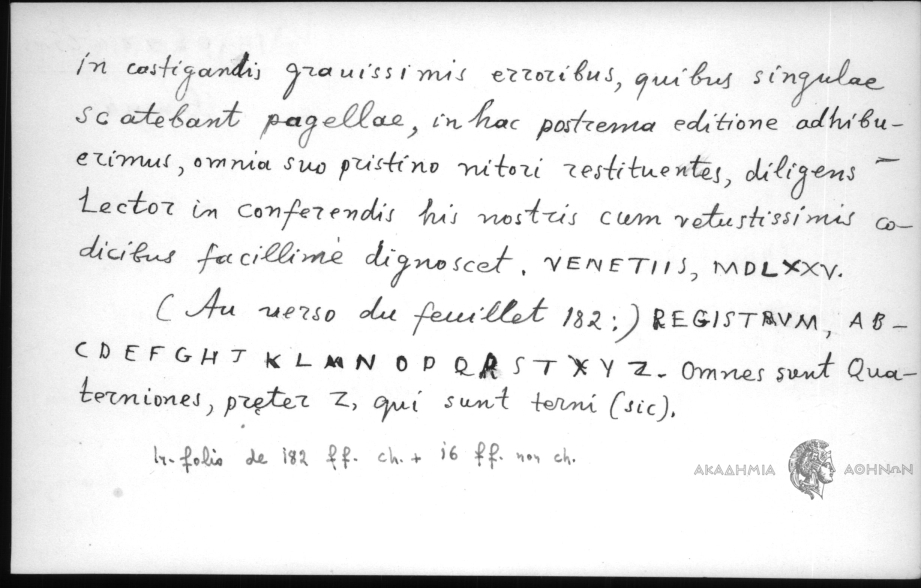 in castigandis grauissimis erroribus, quibus singulae
scatebant pagellae, in hac postrema editione adhibu-
erimus, omnia suo pristino nitori restituentes, diligens
Lector in conferendis his nostris cum vetustissimis co-
dicibus facillimè dignoscet. VENETIIS, MDLXXV.
(Au verso du feuillet 182:) REGISTRVM, AB-
CDEFGHI KLMNOPQRSTXYZ. Omnes sunt Qua-
terniones, pręter Z, qui sunt terni (sic).
In-folio de 182 ff. ch. + 16 ff. non ch.
ΑΚΑΔΗΜΙΑ ΑΘΗΝΩΝ